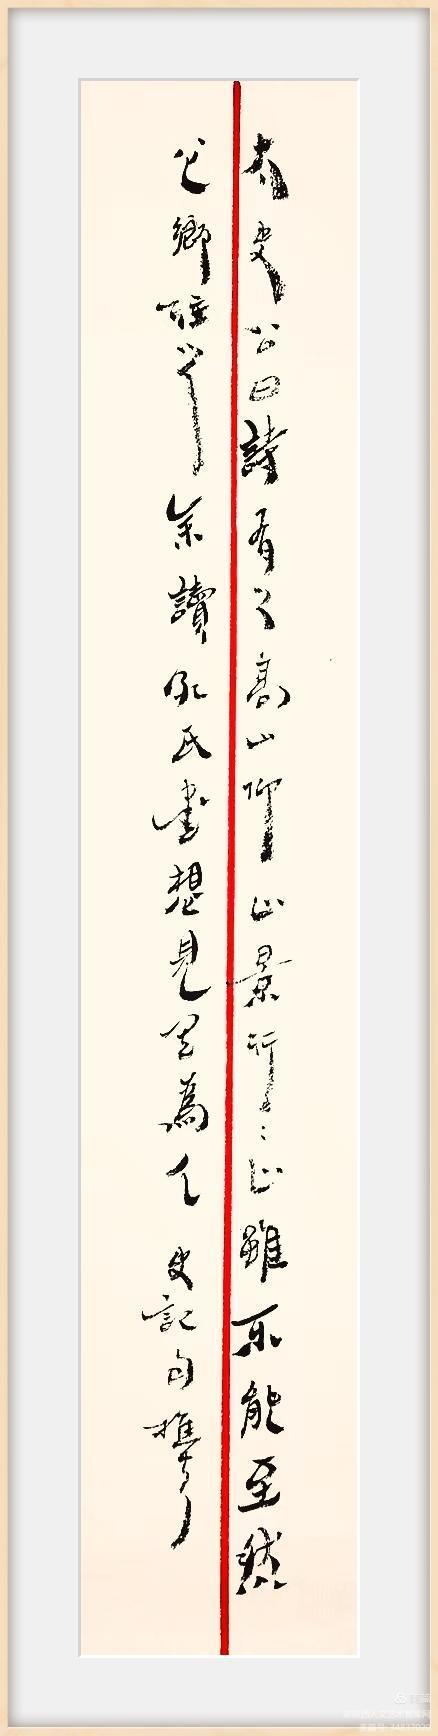 太史公曰詩有之高山仰止景行行止雖不能至然
心鄉往之余讀孔氏書想見其為人 史記句 樵